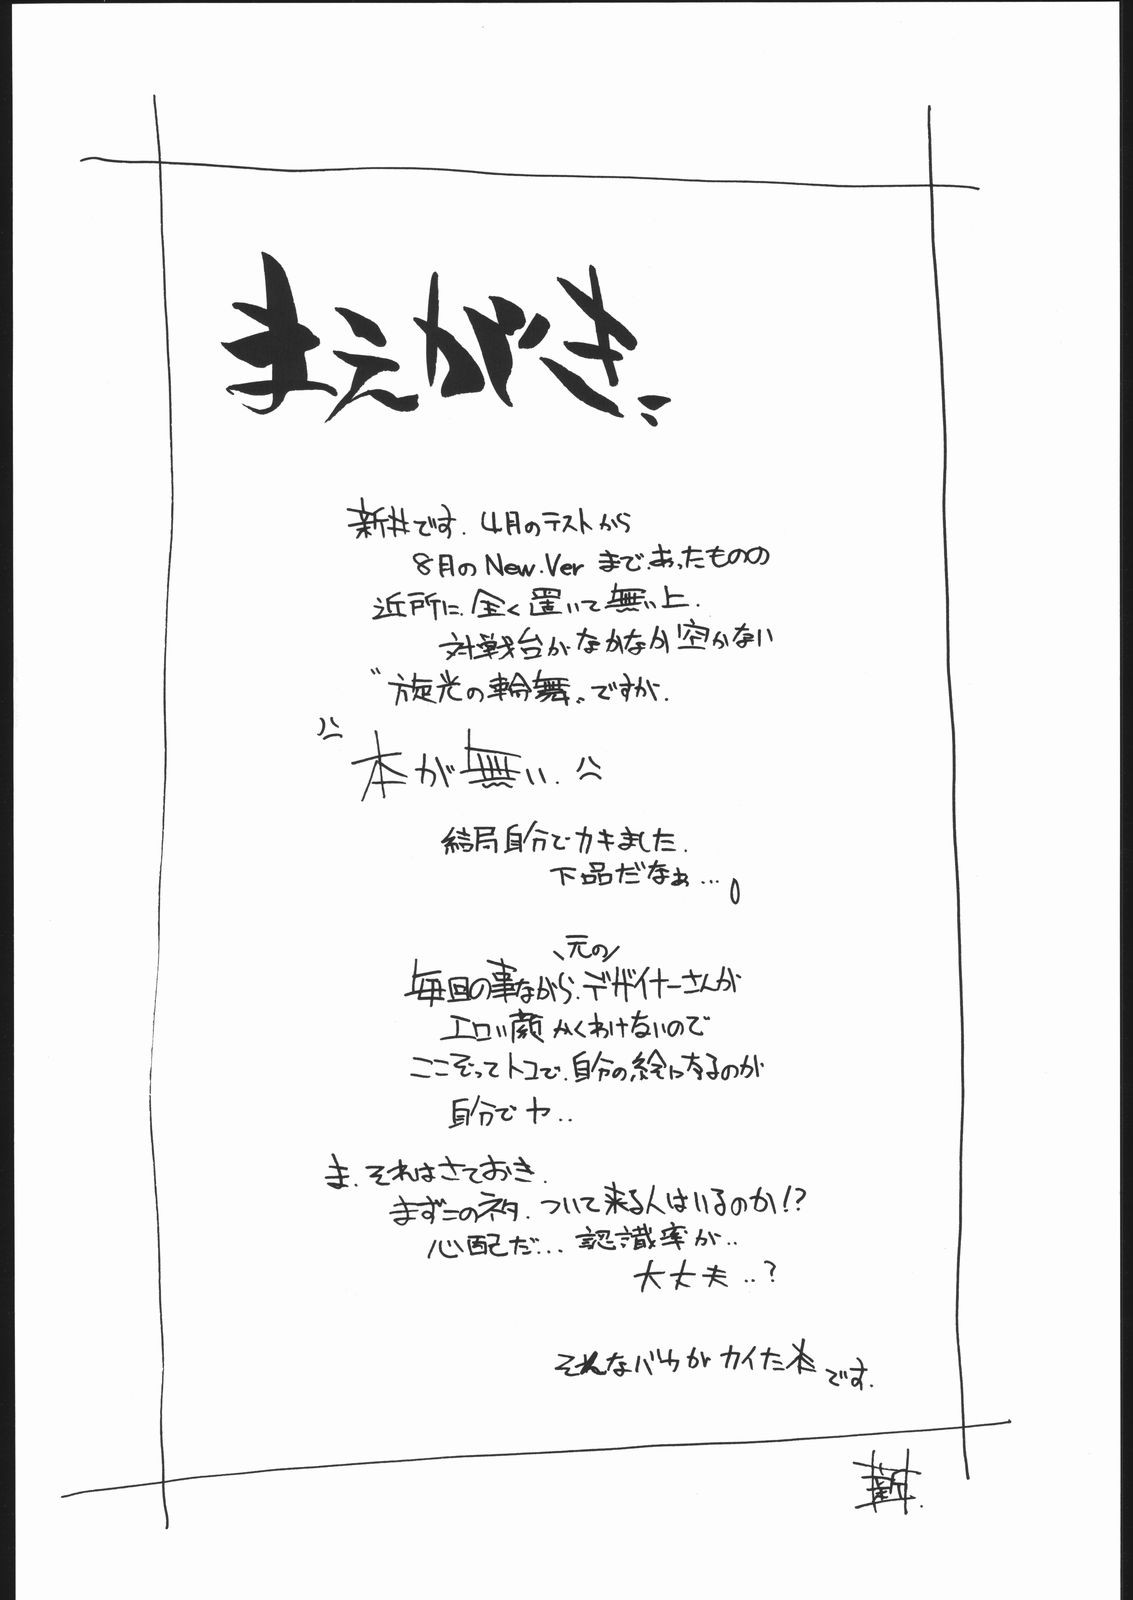 まえがき
新井です. 4月のテストから
8月のNew.Ver まで.あったものの
近所に.全く置いて無い上.
対戦台がなかなか空かない
"旋光の輪舞"ですが.
"本が無い."
結局自分でカキました.
下品だなぁ...
\元の/
毎回の事ながら.デザイナーさんが
エロい顔かくわけないので
ここぞってトコで.自分の絵になるのが
自分でヤ..
ま.それはさておき.
まずこのネタ.ついて来る人はいるのか!?
心配だ... 認識率が..
大丈夫..?
そんなバカがカイた本です.
新